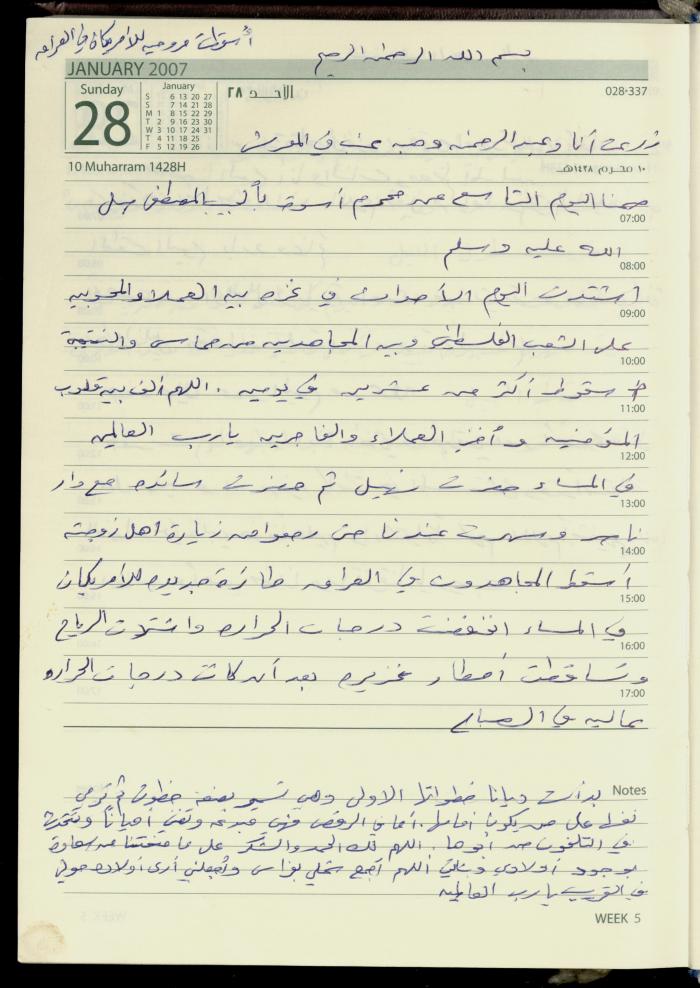 أسقطت مروحيه للأمريكان في العراق
بسم الله الرحمن الرحيم
JANUARY 2007
Sunday
28
January
S 6 13 20 27
S 7 14 21 28
M 1 8 15 22 29
T 2 9 16 23 30
W 3 10 17 24 31
T 4 11 18 25
F 5 12 19 26
الأحد ٢٨
028-337
زرعت أنا وعبد الرحمن وحبه عنب في المعرش
10 Muharram 1428H
١٠ محرم ١٤٢٨هـ
صمنا اليوم التاسع من محرم أسوة بألحبيب المصطفى صلى
07:00
الله عليه وسلم
08:00
اشتدت اليوم الأحداث في غزه بين العملاء والمحسوبين
09:00
على الشعب الفلسطيني وبين المجاهدين من حماس والنتيجة
10:00
سقوط أكثر من عشرين في يومين . اللهم ألف بين قلوب
11:00
المؤمنين وأخزِ العملاء والفاجرين يارب العالمين
12:00
في المساء حضرت نهيل ثم حضرت سائده مع دار
13:00
ناصر وسهرت عندنا حتى رجعوا من زيارة اهل زوجته
14:00
أسقط المجاهدون في العراق طائرة جديده للأمريكان
15:00
في المساء انخفضت درجات الحراره واشتدت الرياح
16:00
وتساقطت أمطار غزيره بعد أن كانت درجات الحراره
17:00
عاليه في الصباح
Notes
بدأت ديانا خطواتها الاولى وهي تسير بضعة خطوات ثم ترمي
نفسها على من يكون أمامها . أما في الرقص فهي مبدعه وتغني أحياناً وتتحدث
في التلفون مع أبوها . اللهم لك الحمد والشكر على ما منحتنا من سعادة
بوجود أولادي وبناتي اللهم اجمع شملي بفراس واجعلني أرى أولاده حولي
في القريب يارب العالمين
WEEK 5